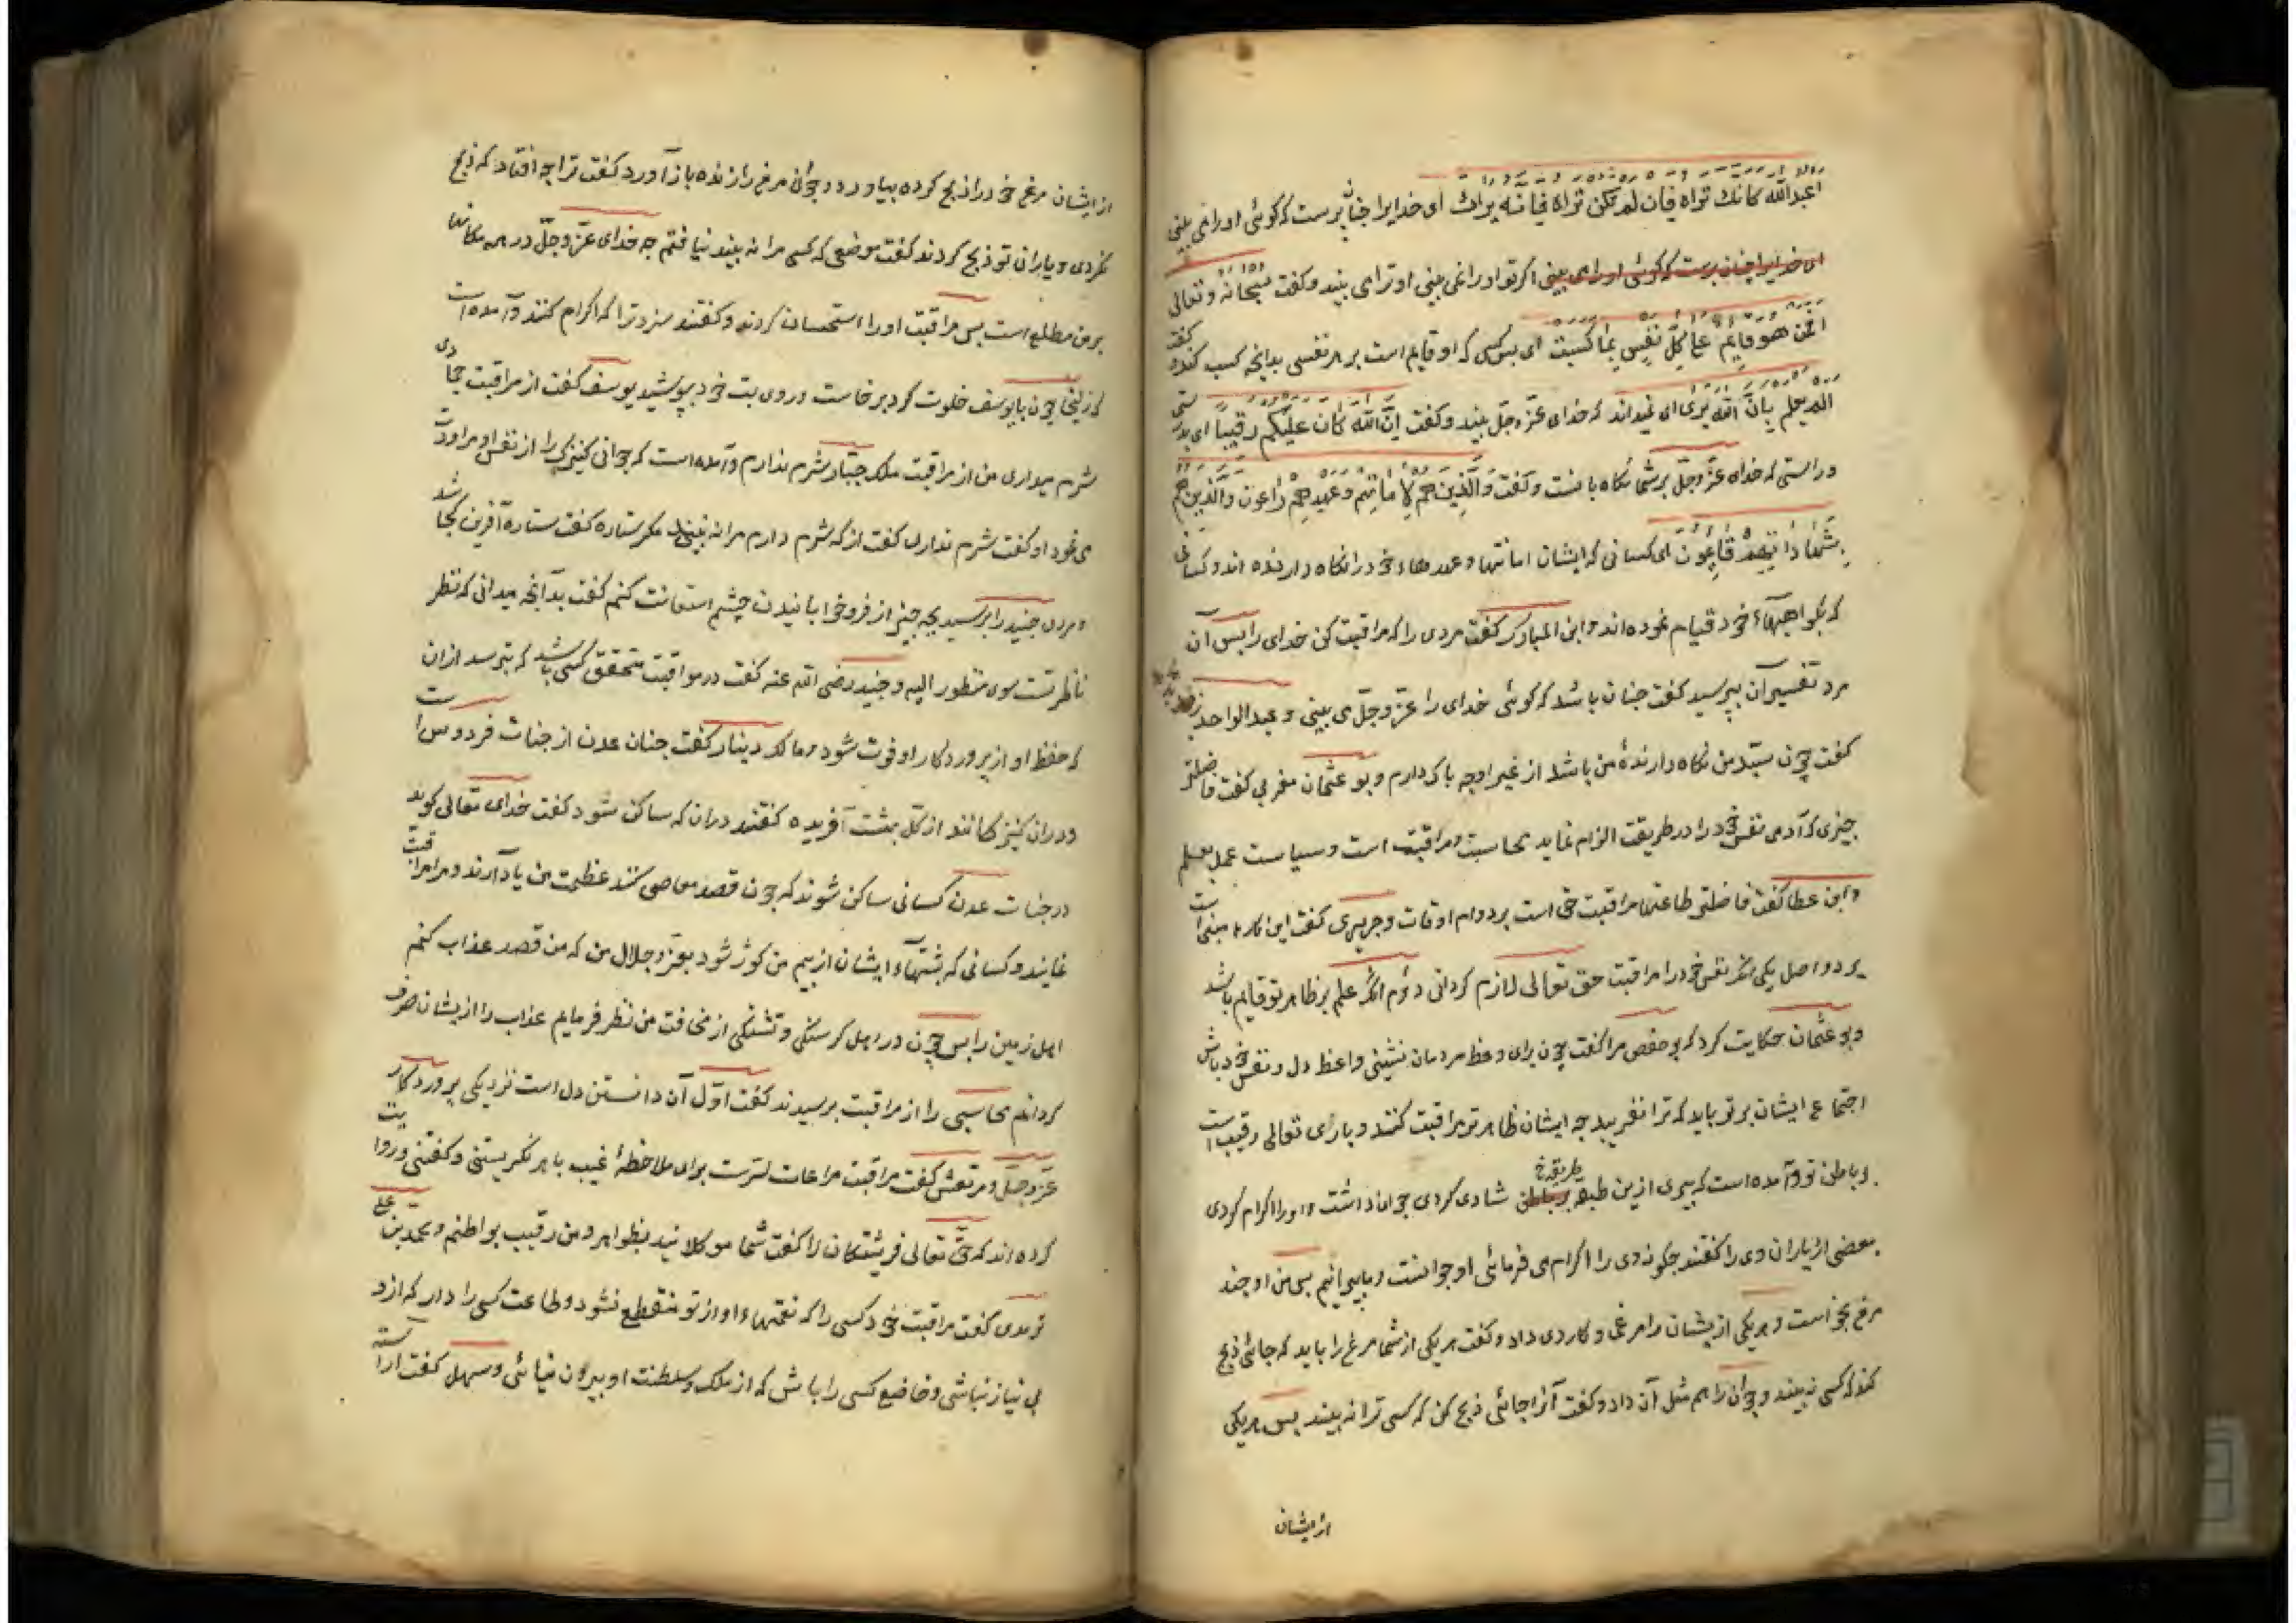 اعبد الله كانك تراه فان لم تكن تراه فانه يراك ای خدایرا چنان پرست که گوئی او را می بینی
ای خدایرا چنان پرست که گوئی او را می بینی اگر تو او را نمی بینی او ترا می بیند و گفت سبحانه و تعالی
افمن هو قایم علی کل نفس بما کسبت ای پس کسی که او قایم است بر هر نفسی بدانچه کسب کند و گفت
الم یعلم بان الله یری ای نمیداند که خدای عزّ و جلّ بیند و گفت ان الله کان علیکم رقیبا ای بدرستی
و راستی که خدای عزّ و جلّ بر شما نگاه بانست و گفت والذین هم لاماناتهم و عهدهم راعون والذین هم
بشهاداتهم قائمون ای کسانی که ایشان امانتها و عهدهاء خود را نگاه دارنده اند و کسانی
که بگواهیهاء خود قیام نموده اند و ابن المبارک گفت مردی را که مراقبت کن خدای را پس آن
مرد تفسیر آن بپرسید گفت چنان باشد که گوئی خدای را عزّ و جلّ می بینی و عبد الواحد زید
گفت چون سیّد من نگاه دارندهٔ من باشد از غیر او چه باک دارم و بو عثمان مغربی گفت فاضلتر
چیزی که آدمی نفس خود را در طریقت الزام نماید محاسبت و مراقبت است و سیاست عمل بعلم
و ابن عطا گفت فاضلتر طاعتها مراقبت حق است بر دوام اوقات و جریری گفت این کار ما مبنی است
بر دو اصل یکی آنکه نفس خود را مراقبت حق تعالی لازم گردانی دوم آنکه علم بر ظاهر تو قایم باشد
و بو عثمان حکایت کرد که بو حفص مرا گفت چون برای وعظ مردمان نشینی واعظ دل و نفس خود باش
اجتماع ایشان بر تو باید که ترا نفریبد چه ایشان ظاهر تو مراقبت کنند و باری تعالی رقیب است
و باطن تو و آمده است که پیری ازین طبقه بر باطن طریقه خ شادی کردی جوانا داشت و او را اکرام کردی
بعضی از یاران وی را گفتند چگونه وی را اکرام می فرمائی او جوانست و ما پیرانیم پس من او چند
مرغ بخواست و هر یکی ازیشان را مرغی و کاردی داد و گفت هر یکی از شما مرغ را باید که جائی ذبح
کند که کسی نبیند و جوان را هم مثل آن داد و گفت آنرا جائی ذبح کن که کسی ترا نه بیند پس هر یکی
از ایشان
از ایشان مرغ خود را ذبح کرده بیاورد و جوان مرغ را زنده باز آورد گفت ترا چه افتاد که ذبح
نکردی و یاران تو ذبح کردند گفت موضعی که کسی مرا نه بیند نیافتم چه خدای عزّ و جلّ در همه مکانها
بر من مطلع است پس مراقبت او را استحسان کردند و گفتند سزد ترا که اکرام کنند و آمده است
که زلیخا چون با یوسف خلوت کرد برخاست و روی بت خود بپوشید یوسف گفت از مراقبت جمادی
شرم میداری من از مراقبت ملک جبّار شرم ندارم و آمده است که جوانی کنیزکی را از نفس او مراودت
می نمود او گفت شرم نداری گفت از که شرم دارم مرا نه بیند مگر ستاره گفت ستاره آفرین کجا شد
و مردی جنید را پرسید بچه چیز از فرو خوابانیدن چشم استعانت کنم گفت بدانچه میدانی که نظر
ناظر تست سوی منظور الیه و جنید رضی الله عنه گفت در مراقبت متحقق کسی باشد که بترسد از آن
که حظ او از پروردگار او فوت شود و مالک دینار گفت جنان عدن از جنات فردوس است
و در آن کنیزکانند از گل بهشت آفریده گفتند در آن که ساکن شود گفت خدای تعالی گوید
در جنات عدن کسانی ساکن شوند که چون قصد معاصی کنند عظمت من یاد آرند و مرا مراقبت
نمایند و کسانی که پشتهاء ایشان از بیم من کوژ شود بعزّ و جلال من که من قصد عذاب کنم
اهل زمین را پس چون در اهل گرسنگی و تشنگی از مخافت من نظر فرمایم عذاب را ازیشان صرف
گردانم محاسبی را از مراقبت پرسیدند گفت اوّل آن دانستن دل است نزدیکی پروردگار
عزّ و جلّ و مرتعش گفت مراقبت مراعات سرّست برای ملاحظهٔ غیب با هر نگریستنی و گفتنی و روایت
کرده اند که حق تعالی فریشتگان را گفت شما موکلانید بظواهر و من رقیب بواطنم و محمد بن علی
ترمدی گفت مراقبت خود کسی را کن که نعمتهاء او از تو منقطع نشود و طاعت کسی را دار که ازو
بی نیاز نباشی و خاضع کسی را باش که از ملک و سلطنت او بیرون نیائی و سهل گفت آراسته